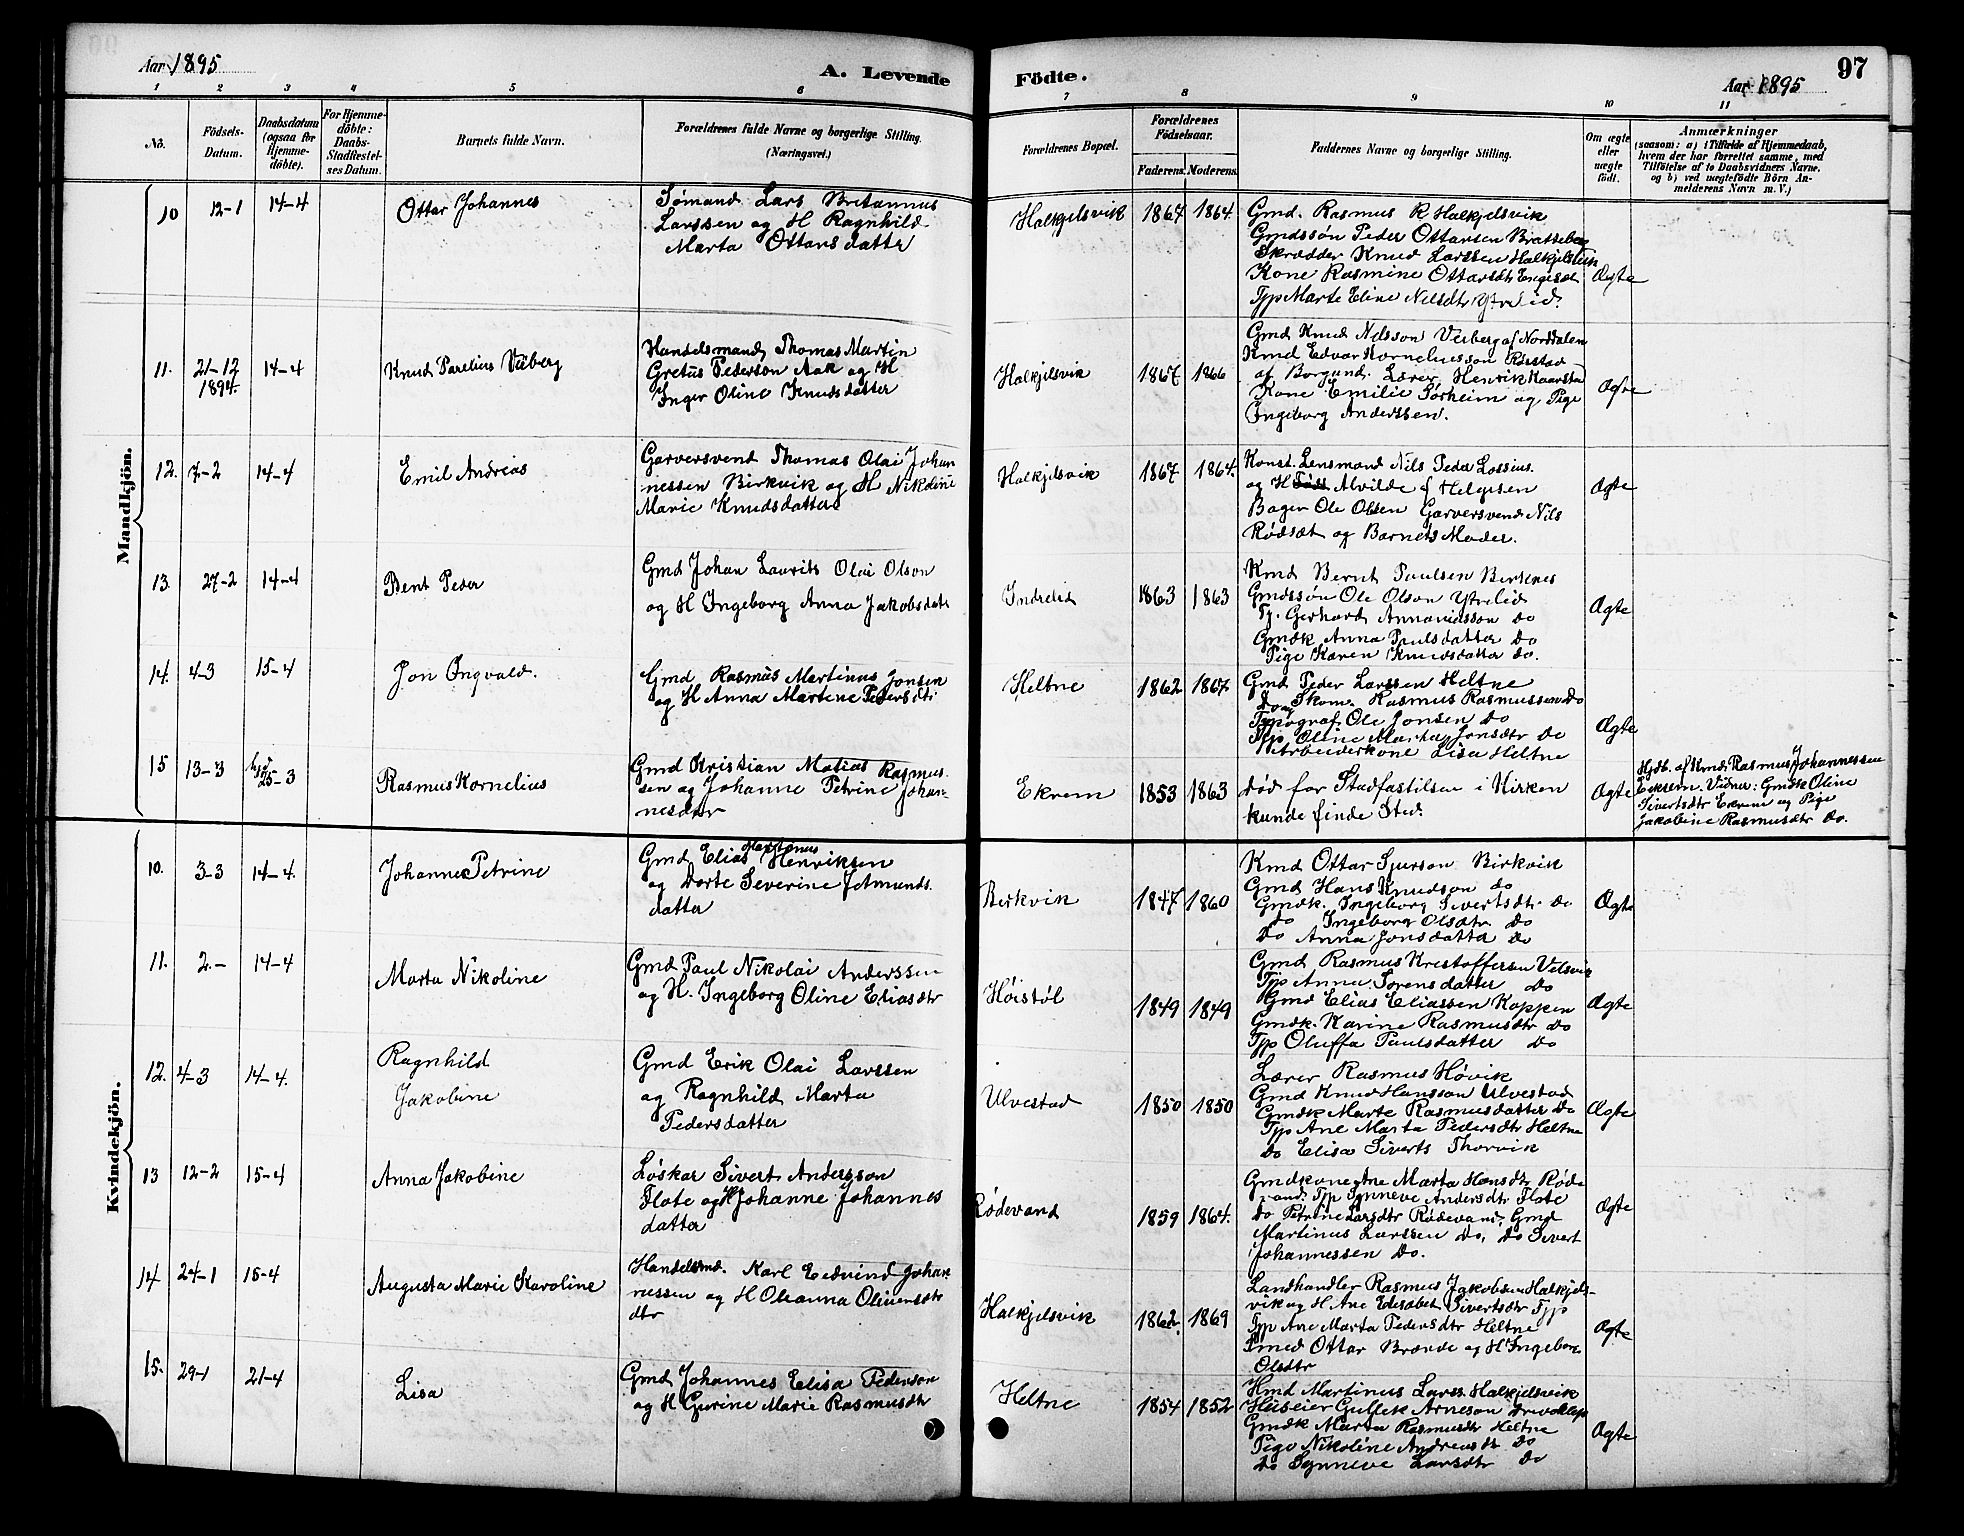 Aar 1895
A. Levende
Födte.
Aar 1895
97
1 2 3 4 5 6 7 8 9 10 11
No.
Födsels-
Datum.
Daabsdatum
(ogsaa for
Hjemme-
döbte).
For Hjemme-
döbte:
Daabs-
Stadfæstel-
ses Datum.
Barnets fulde Navn.
Forældrenes fulde Navne og borgerlige Stilling.
(Næringsvei.)
Forældrenes Bopæl.
Forældrenes
Födselsaar.
Faderens. Moderens.
Faddernes Navne og borgerlige Stilling.
Om ægte
eller
uægte
födt.
Anmærkninger
(saasom: a) i Tilfælde af Hjemmedaab,
hvem der har forrettet samme, med
Tilföielse af to Daabsvidners Navne,
og b) ved uægtefödte Börn An-
melderens Navn m. V.)
Mandkjön.
10 12-1 14-4
Ottar Johannes
Sømand Lars Britannus
Larssen og H Ragnhild
Marta Ottarsdatter
Halkjelsvik
1864 1864
Gmd. Rasmus R Halkjelsvik
Gmdssøn Peder Ottarsen Bratteberg
Skrædder Knud Larssen Halkjelsvik
Kone Rasmine Ottarsdtr Engeset
Tjp Marte Eline Nilsdtr Ytrelid.
Ægte
11. 21-12
1894.
14-4
Knud Parelius Viiberg
Handelsmand Thomas Martin
Gretus Pederson Aak og H
Inger Oline Knudsdatter
Halkjelsvik
1867 1866
Gmd Knud Nilsson Viiberg af Norddalen
Kmd Edvar Korneliusson Rørstad
af Borgund. Lærer Henrik Kaarstad
Kone Emilie Sørheim og Pige
Ingeborg Anderssen.
Ægte
12. 7-2 14-4
Emil Andreas
Garversvend Thomas Olai Johan
nessen Birkvik og H Nikoline
Marie Knudsdatter
Halkjelsvik
1867 1864.
Konst. Lensmand Nils Peder Lossius.
og H Alvilde f Helgesen
Bager Ole Olsen Garversvend Nils
Rødsæt og Barnets Moder.
Ægte
13. 27-2 14-4
Bent Peder
Gmd Johan Laurits Olai Olson
og H Ingeborg Anna Jakobsdatr
Indrelid
1863 1863
Kmd Bernt Paulsen Birknes
Gmdssøn Ole Olson Ytrelid
Tj. Gerhard Annaniasson do
Gmdk Anna Paulsdatter do
Pige Karen Knudsdatter do.
Ægte
14. 4-3 15-4
Jon Ingvald.
Gmd Rasmus Martinus Jonsen
og H Anna Martine Pedersdtr
Heltne
1862 1867
Gmd Peder Larssen Heltne
Do og Skom. Rasmus Rasmussen Do
Typograf Ole Jonsen Do
Tjp Oline Marta Jonsdtr Do
Arbeiderkone Lisa Heltne
Ægte
15 13-3
25-3
Rasmus Kornelius
Gmd Kristian Matias Rasmus-
sen og Johanne Petrine Johan-
nesdatr
Ekrem
1853 1863
død før Stadfæstelsen i Kirken
kunde finde Sted.
Ægte
Hjdb. af Kmd. Rasmus Johannessen
Ekrem. Vidner: Gmdk Oline
Sivertsdtr Ekrem og Pige
Jakobine Rasmusdtr Do.
Kvindekjön.
10. 3-3 14-4.
Johanne Petrine
Gmd Elias Martinus Henriksen
og Dorte Severine Jetmunds
datter
Birkvik
1847 1860
Kmd Ottar Sjurson Birkvik
Gmd Hans Knudson do
Gmdk. Ingeborg Sivertsdtr do
do Ingeborg Olsdtr do
Do Anna Jonsdatter do
Ægte
11. 2.- 14-4
Marta Nikoline
Gmd Paul Nikolai Anderssen
og H. Ingeborg Oline Eliasdtr
Høistøl
1849 1849
Gmd Rasmus Kristoffersen Velsvik
Tjp Anna Sørensdatter do
Gmd Elias Eliassen Koppen
Gmdk. Karine Rasmusdtr do
Tjp Oluffa Paulsdatter do
Ægte
12. 4-3 14-4.
Ragnhild
Jakobine
Gmd Erik Olai Larssen
og Ragnhild Marta
Pedersdatter
Ulvestad
1850 1850
Lærer Rasmus Høvik
Gmd Knud Hansson Ulvestad
Gmdk Marte Rasmusdatter Do
Tjp Ane Marta Pedersdtr Heltne
do Elisa Siverts Thorvik
Ægte
13 12-2 15-4
Anna Jakobine
Løskar Sivert Andersson
Flote og H Johanne Johannes
datter
Rødevand
1859 1864.
Gmdkone Ane Marta Hansdtr Røde
vand, Tjp Synneve Andersdtr Flote
Do Petrine Larsdtr Rødevand, Gmd
Martinus Larssen do, do Sivert
Johannessen do.
Ægte
14 24-1 16-4
Augusta Marie Karoline
Handelsmd. Karl Edvind Johan-
nessen og H Oleanna Olivensdtr
dtr
Halkjelsvik
1862. 1869
Landhandler Rasmus Jakobsen Halkjels-
vik og H Ane Edisabet Sivertsdtr Tjp
Tjp Ane Marta Pedersdtr Heltne
Smed Ottar Brænde og H Ingeborg
Olsdtr
Ægte
15. 29-1 21-4
Lisa
Gmd Johannes Elisa Pederson
og H Gurine Marie Rasmusdtr
Heltne
1854 1852
Kmd Martinus Larss. Halkjelsvik
Huseier Gullek Arneson
Gmdk Marta Rasmusdtr Heltne
Pige Nikoline Andreasdtr Do
Do Synneve Larsdtr Do
Ægte